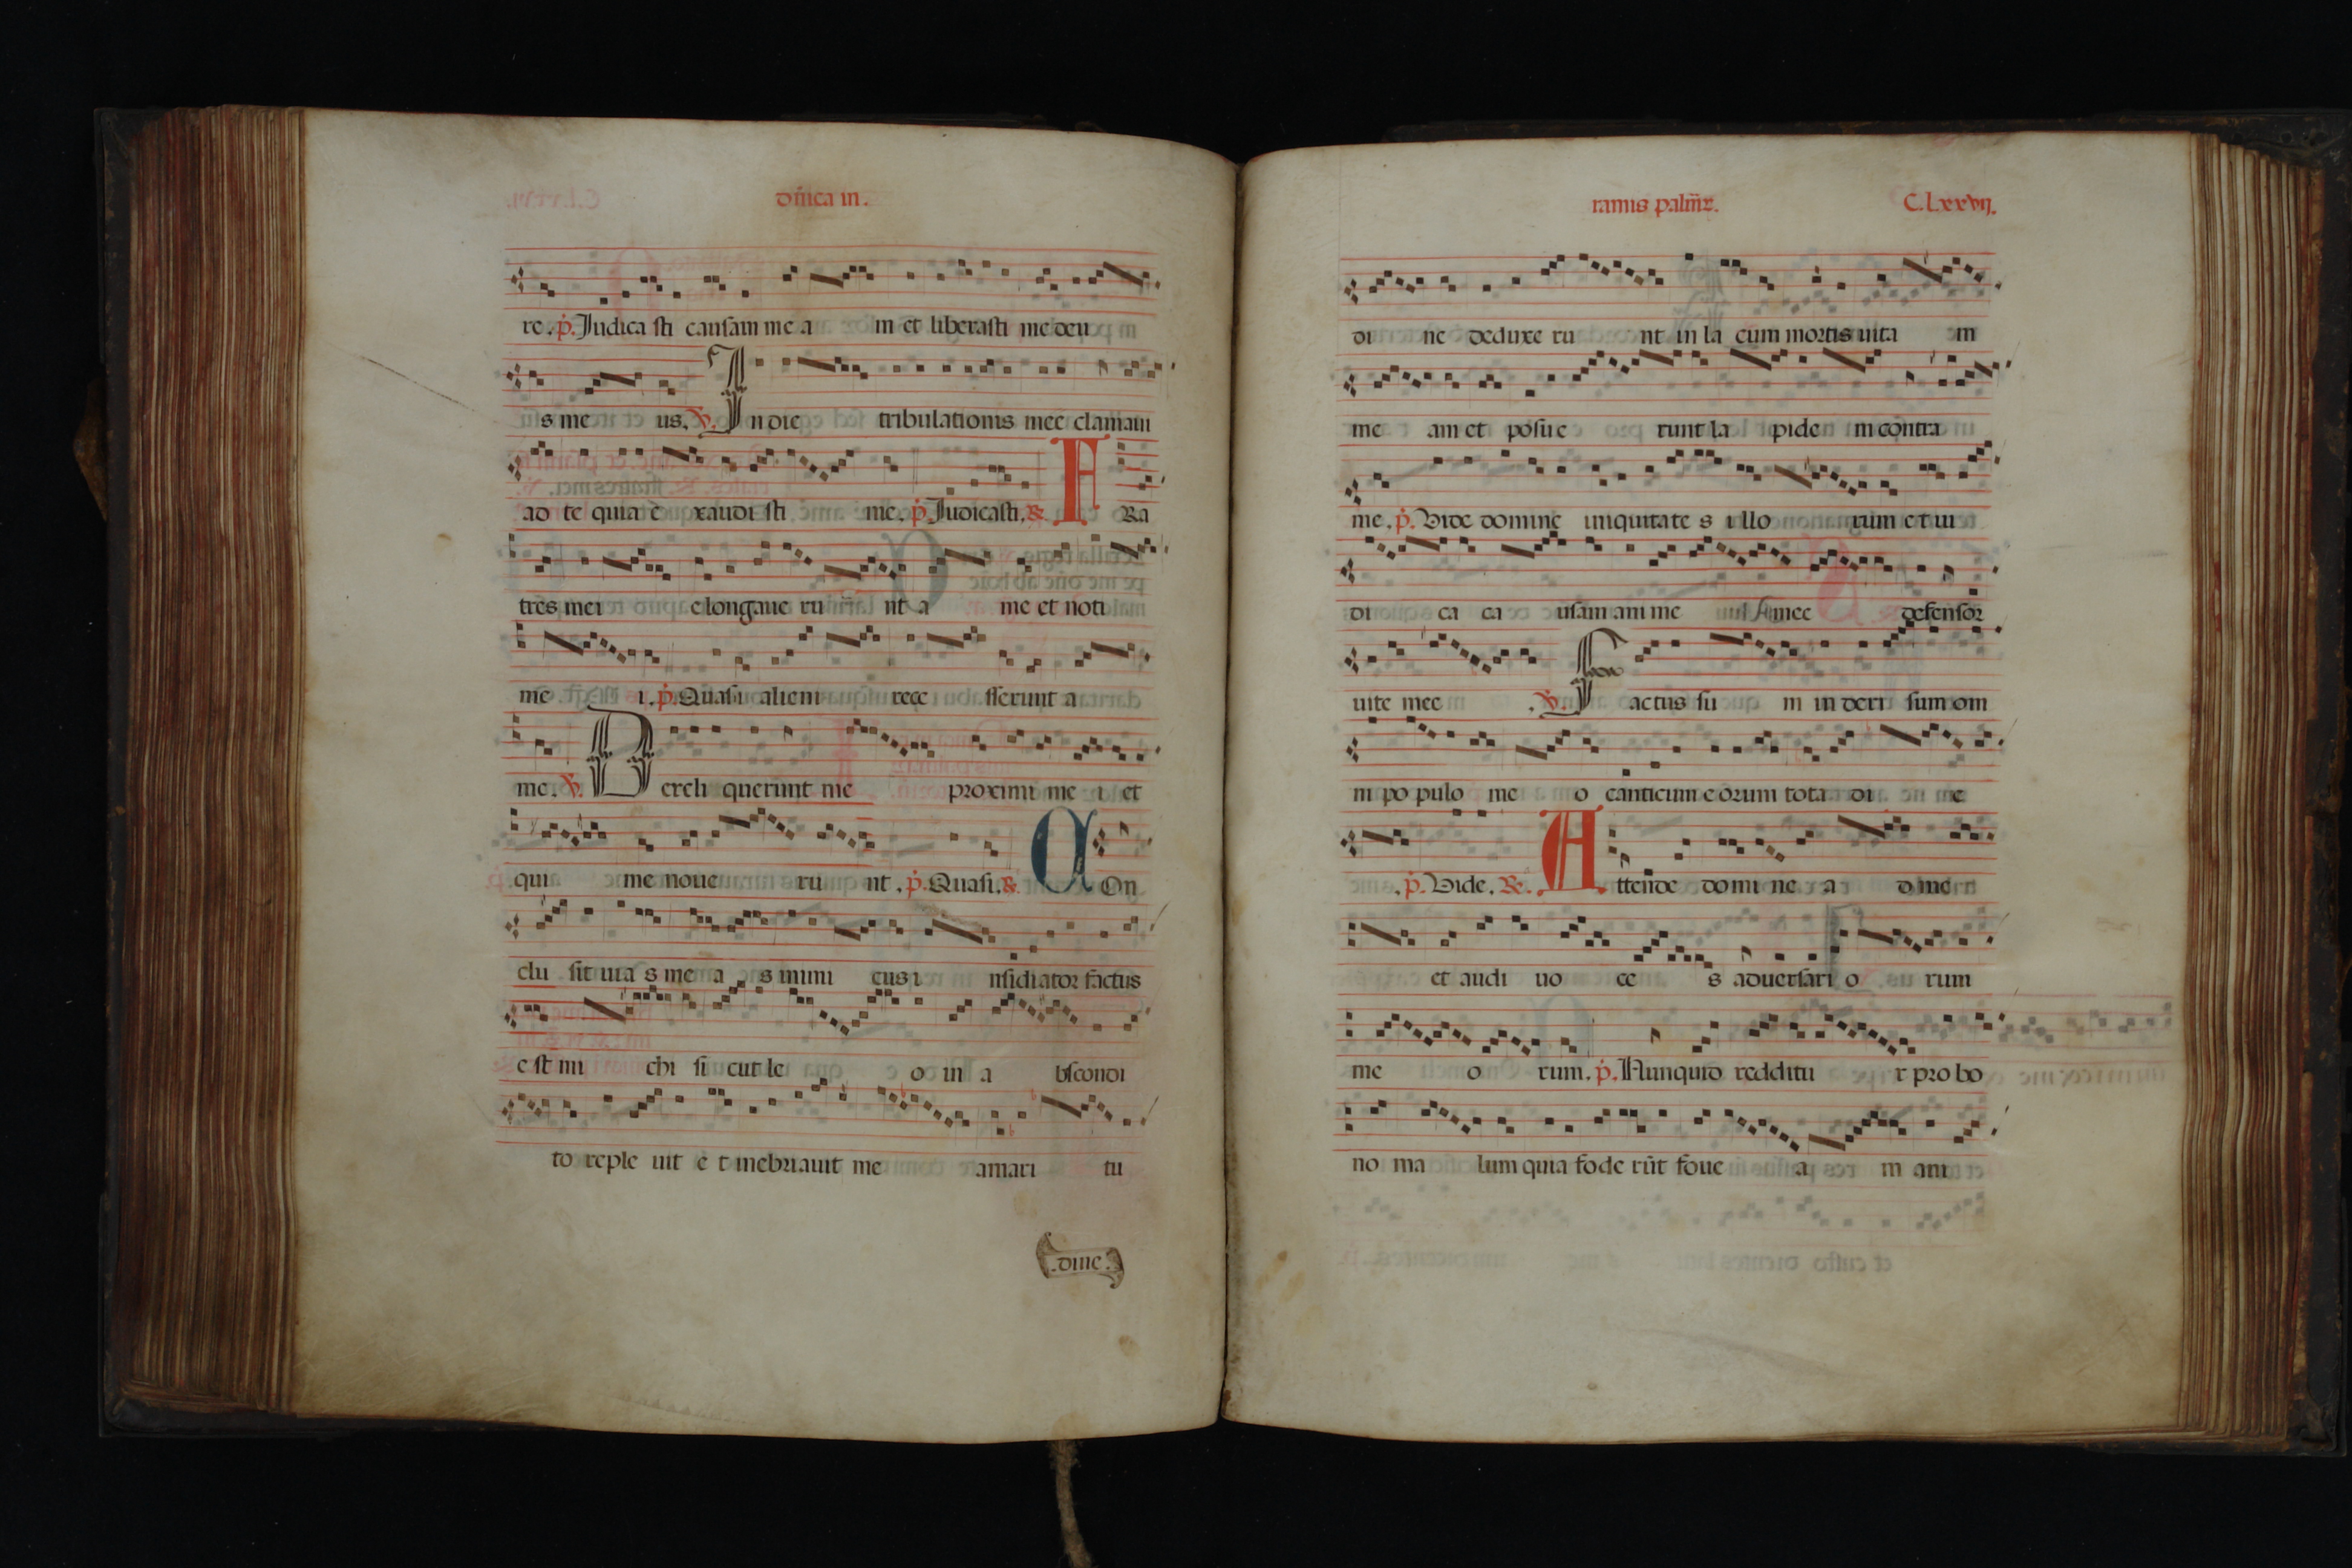 dñica in.
re. p. Judica sti causam me a m et liberasti me deu
s me us. V. In die tribulationis mee clamaui
ad te quia e xaudi sti me. p. Judicasti. R. F Ra
tres mei elongaue ru nt a me et noti
me i. p. Quasi alieni rece sserunt a
me. V. Dereli querunt me proximi me i et
qui me noue ru nt. p. Quasi. R. C On
clu sit uia s me a s inimi cus i nsidiator factus
e st mi chi si cut le o in a bscondi
to reple uit e t inebriauit me amari tu
.dine.
ramis palm̃ꝝ. C.Lxxvij.
di ne deduxe ru nt in la cum mortis uita m
me am et posu e runt la pide m contra
me. p. Vide domine iniquitate s illo rum et iu
di ca ca usam anime mee defensor
uite mee . V. Factus su m in deri sum om
ni po pulo me o canticum eorum tota di e
. p. Vide. R. Attende domi ne a d me
et audi uo ce s aduersari o rum
me o rum. p. Nunquid redditu r pro bo
no ma lum quia fode rũt foue a m ani